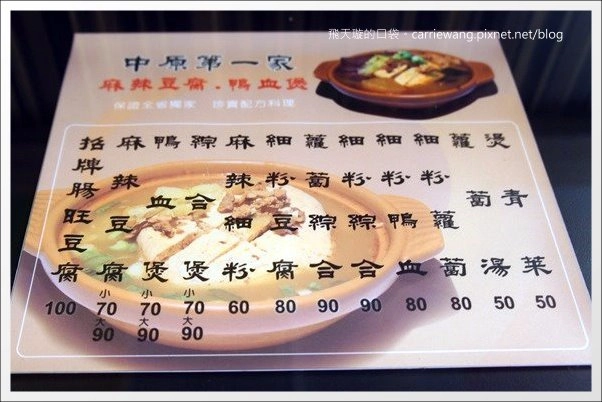 飛天璇的口袋・carriewang.pixnet.net/blog
中原第一家
麻辣豆腐．鴨血煲
保證全省獨家 珍貴配方料理
招牌腸旺豆腐 100
麻辣豆腐 小70 大90
鴨血煲 小70 大90
綜合煲 小70 大90
麻辣細粉 60
細粉豆腐 80
蘿蔔綜合 90
細粉綜合 90
細粉鴨血 80
細粉蘿蔔 80
蘿蔔湯 50
燙青菜 50